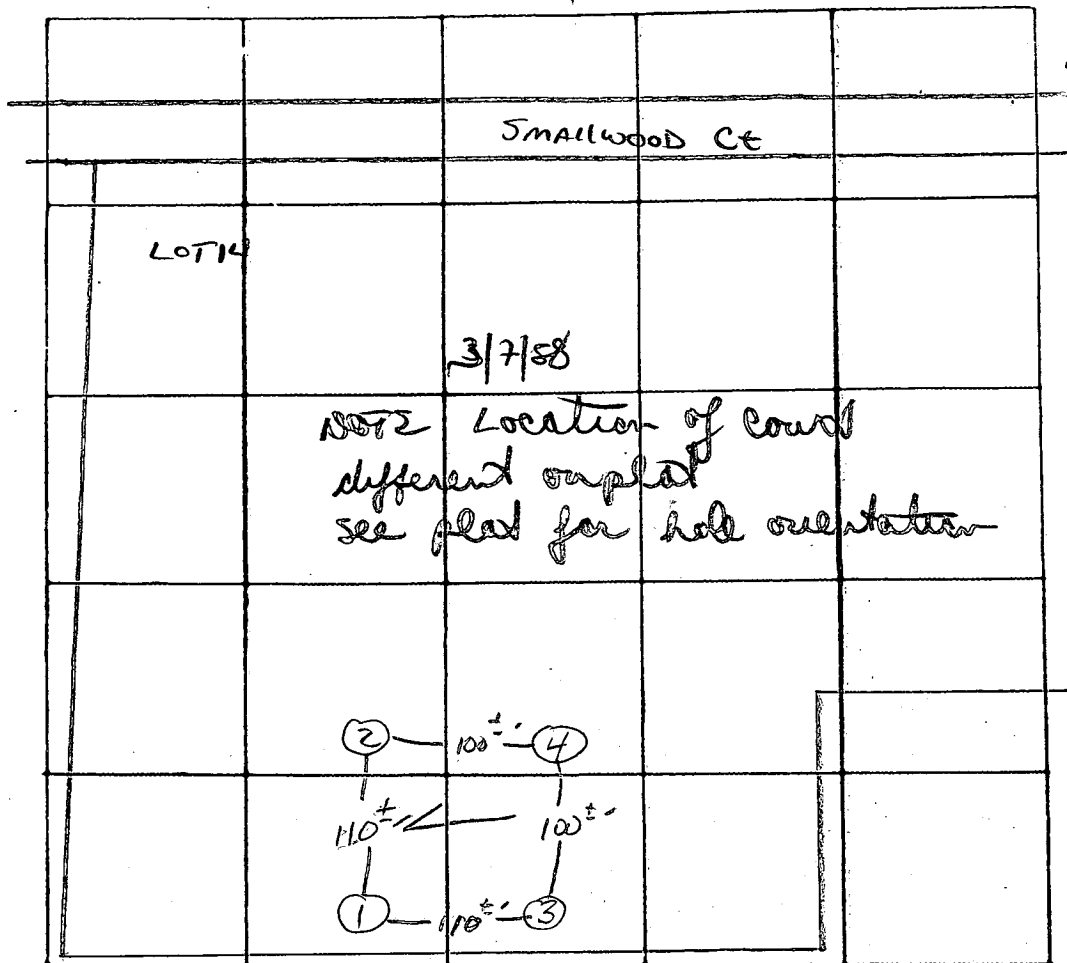 SMALLWOOD Ct
LOT 14
3/7/88
NOTE Location of court
different on plat
see plat for hole orientation
2 100±' 4
110±' 100±'
1 110±' 3